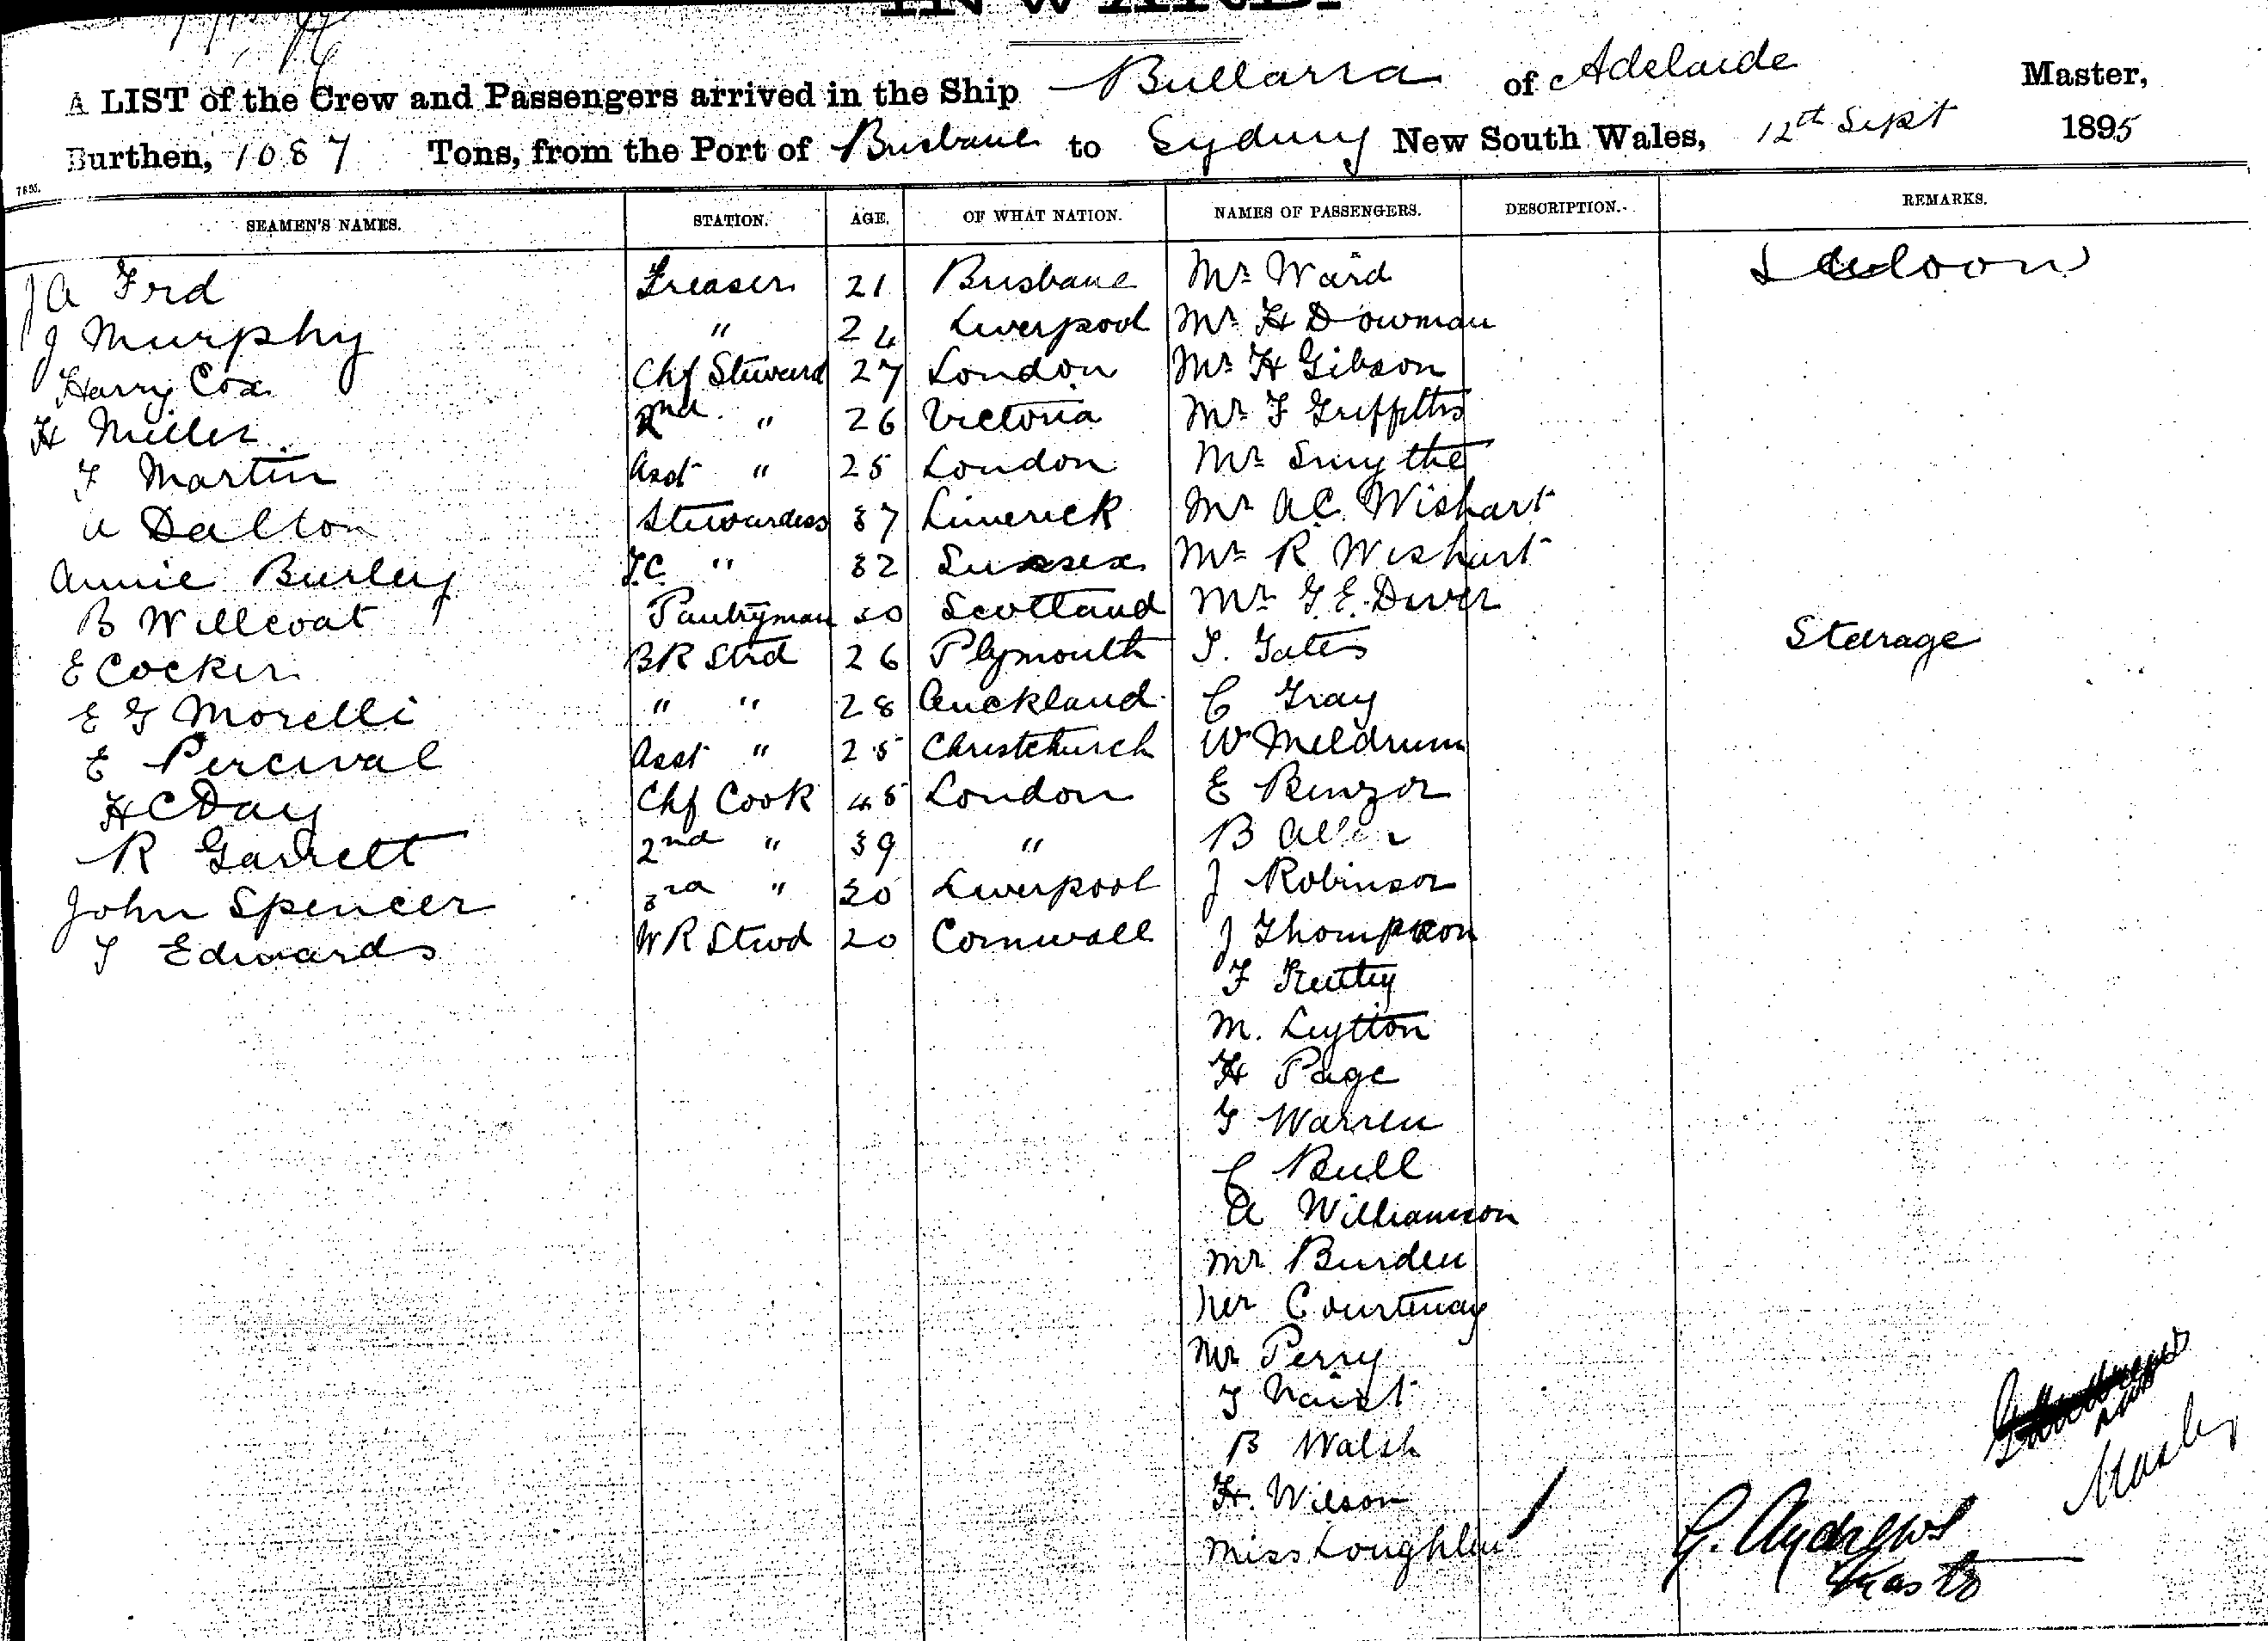 INWARD.
A LIST of the Crew and Passengers arrived in the Ship Bullarra of Adelaide Master,
Burthen, 1087 Tons, from the Port of Brisbane to Sydney New South Wales, 12th Sept 1895
SEAMEN'S NAMES. STATION. AGE. OF WHAT NATION. NAMES OF PASSENGERS. DESCRIPTION. REMARKS.
J A Ford Greaser 21 Brisbane Mr Ward Saloon
J Murphy " 24 Liverpool Mr H Dowman
Harry Cox Chf Steward 27 London Mr H Gibson
H Miller 2nd " 26 Victoria Mr F Griffiths
F Martin Asst " 25 London Mr Smythe
A Dalton Stewardess 37 Limerick Mr A C Wishart
Annie Burley F.C. " 32 Sussex Mr R Wishart
B Willcoat Pantryman 30 Scotland Mr G. E. Diver
E Cocker BR Strd 26 Plymouth T. Gates Steerage
E G Morelli " " 28 Auckland C Gray
E Percival Asst " 25 Christchurch W Meldrum
H C Day Chf Cook 45 London E Binzor
R Garrett 2nd " 39 " B Allen
John Spencer 3rd " 30 Liverpool J Robinson
T Edwards W R Stwd 20 Cornwall J Thompson
F
M. Luytton
H Page
G Warren
C Bull
A Williamson
Mr Burden
Mr Courtenay
Mr Perry
T
B Walsh
H. Wilson
Miss Loughlin
G. Andrews
Master